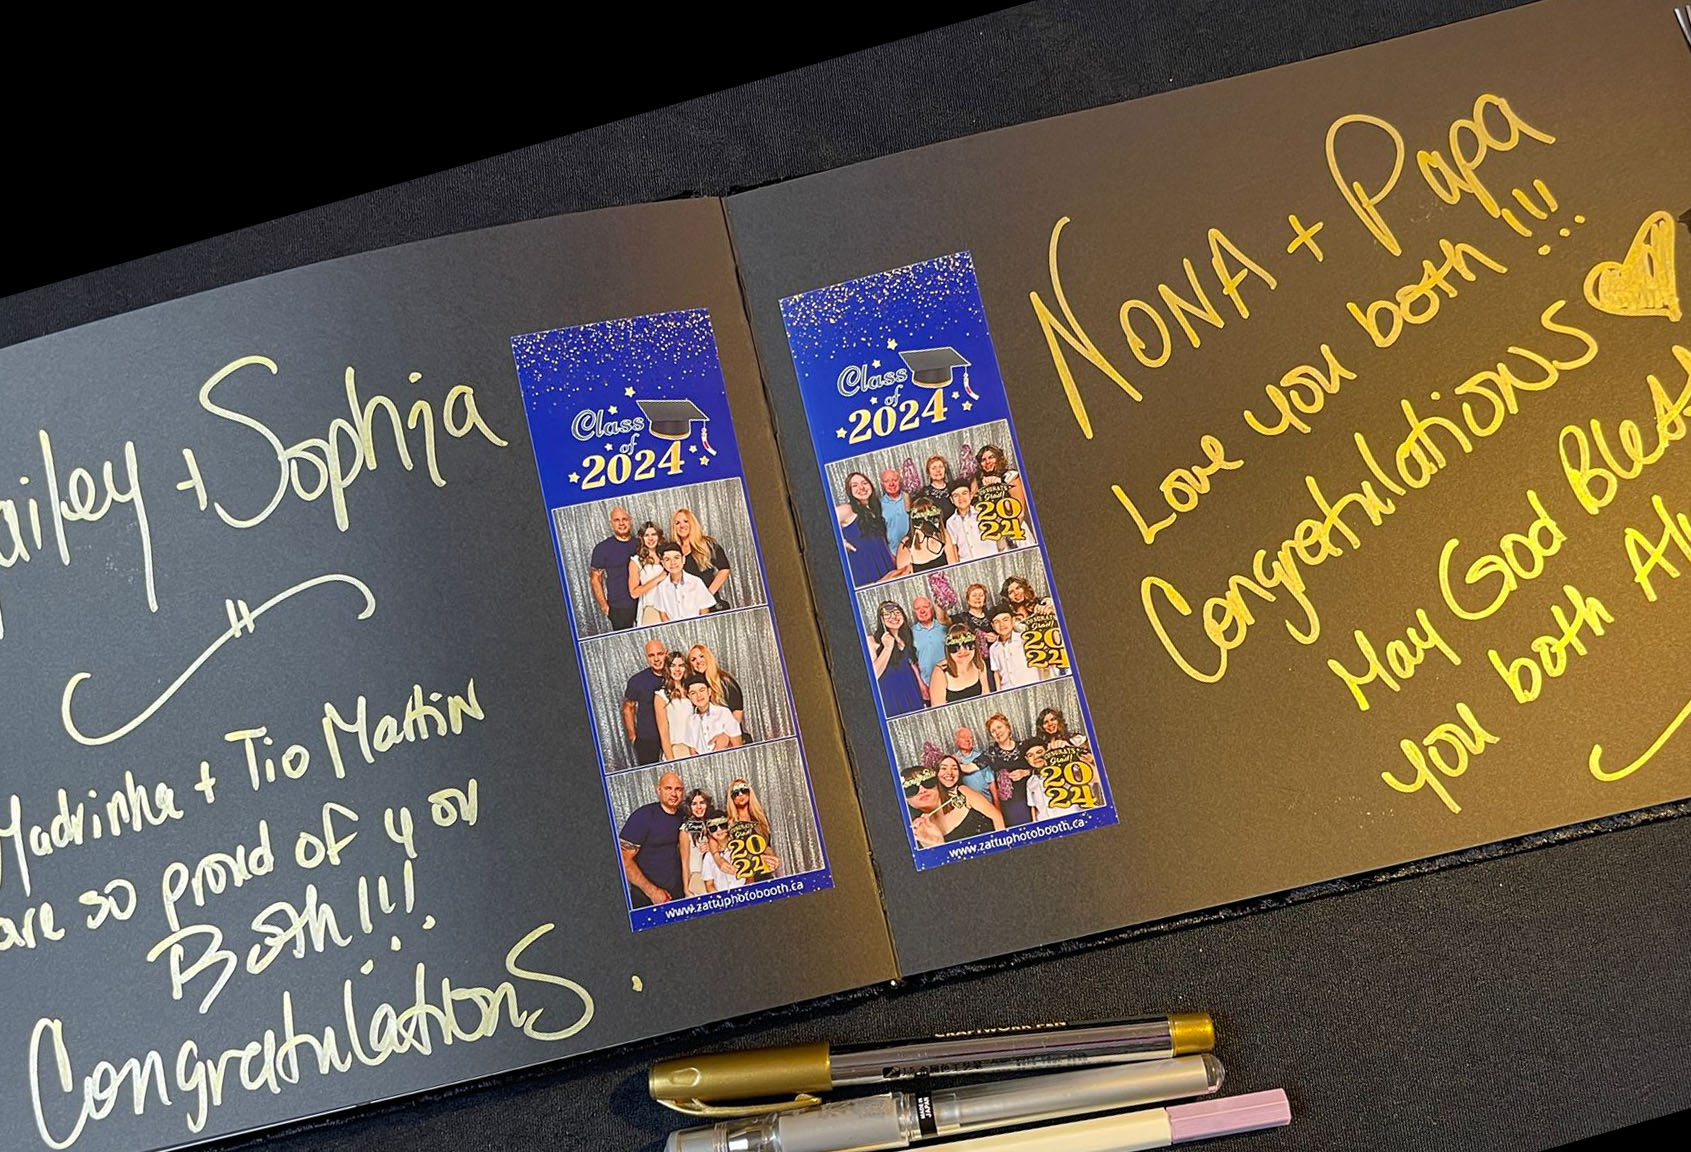 + Sophia
Madrinha + Tio Martin
are so proud of you
Both!!!
Congratulations.
Class
of
2024
CONGRATS
Grad!
20
24
www.zattuphotobooth.ca
Class
of
2024
CONGRATS
Grad!
20
24
CONGRATS
Grad!
20
24
CONGRATS
Grad!
20
24
www.zattuphotobooth.ca
NONA + Papa
Love you both!!!
Congratulations
May God Bless
you both
CRAFTWORK PEN
MADE IN
JAPAN